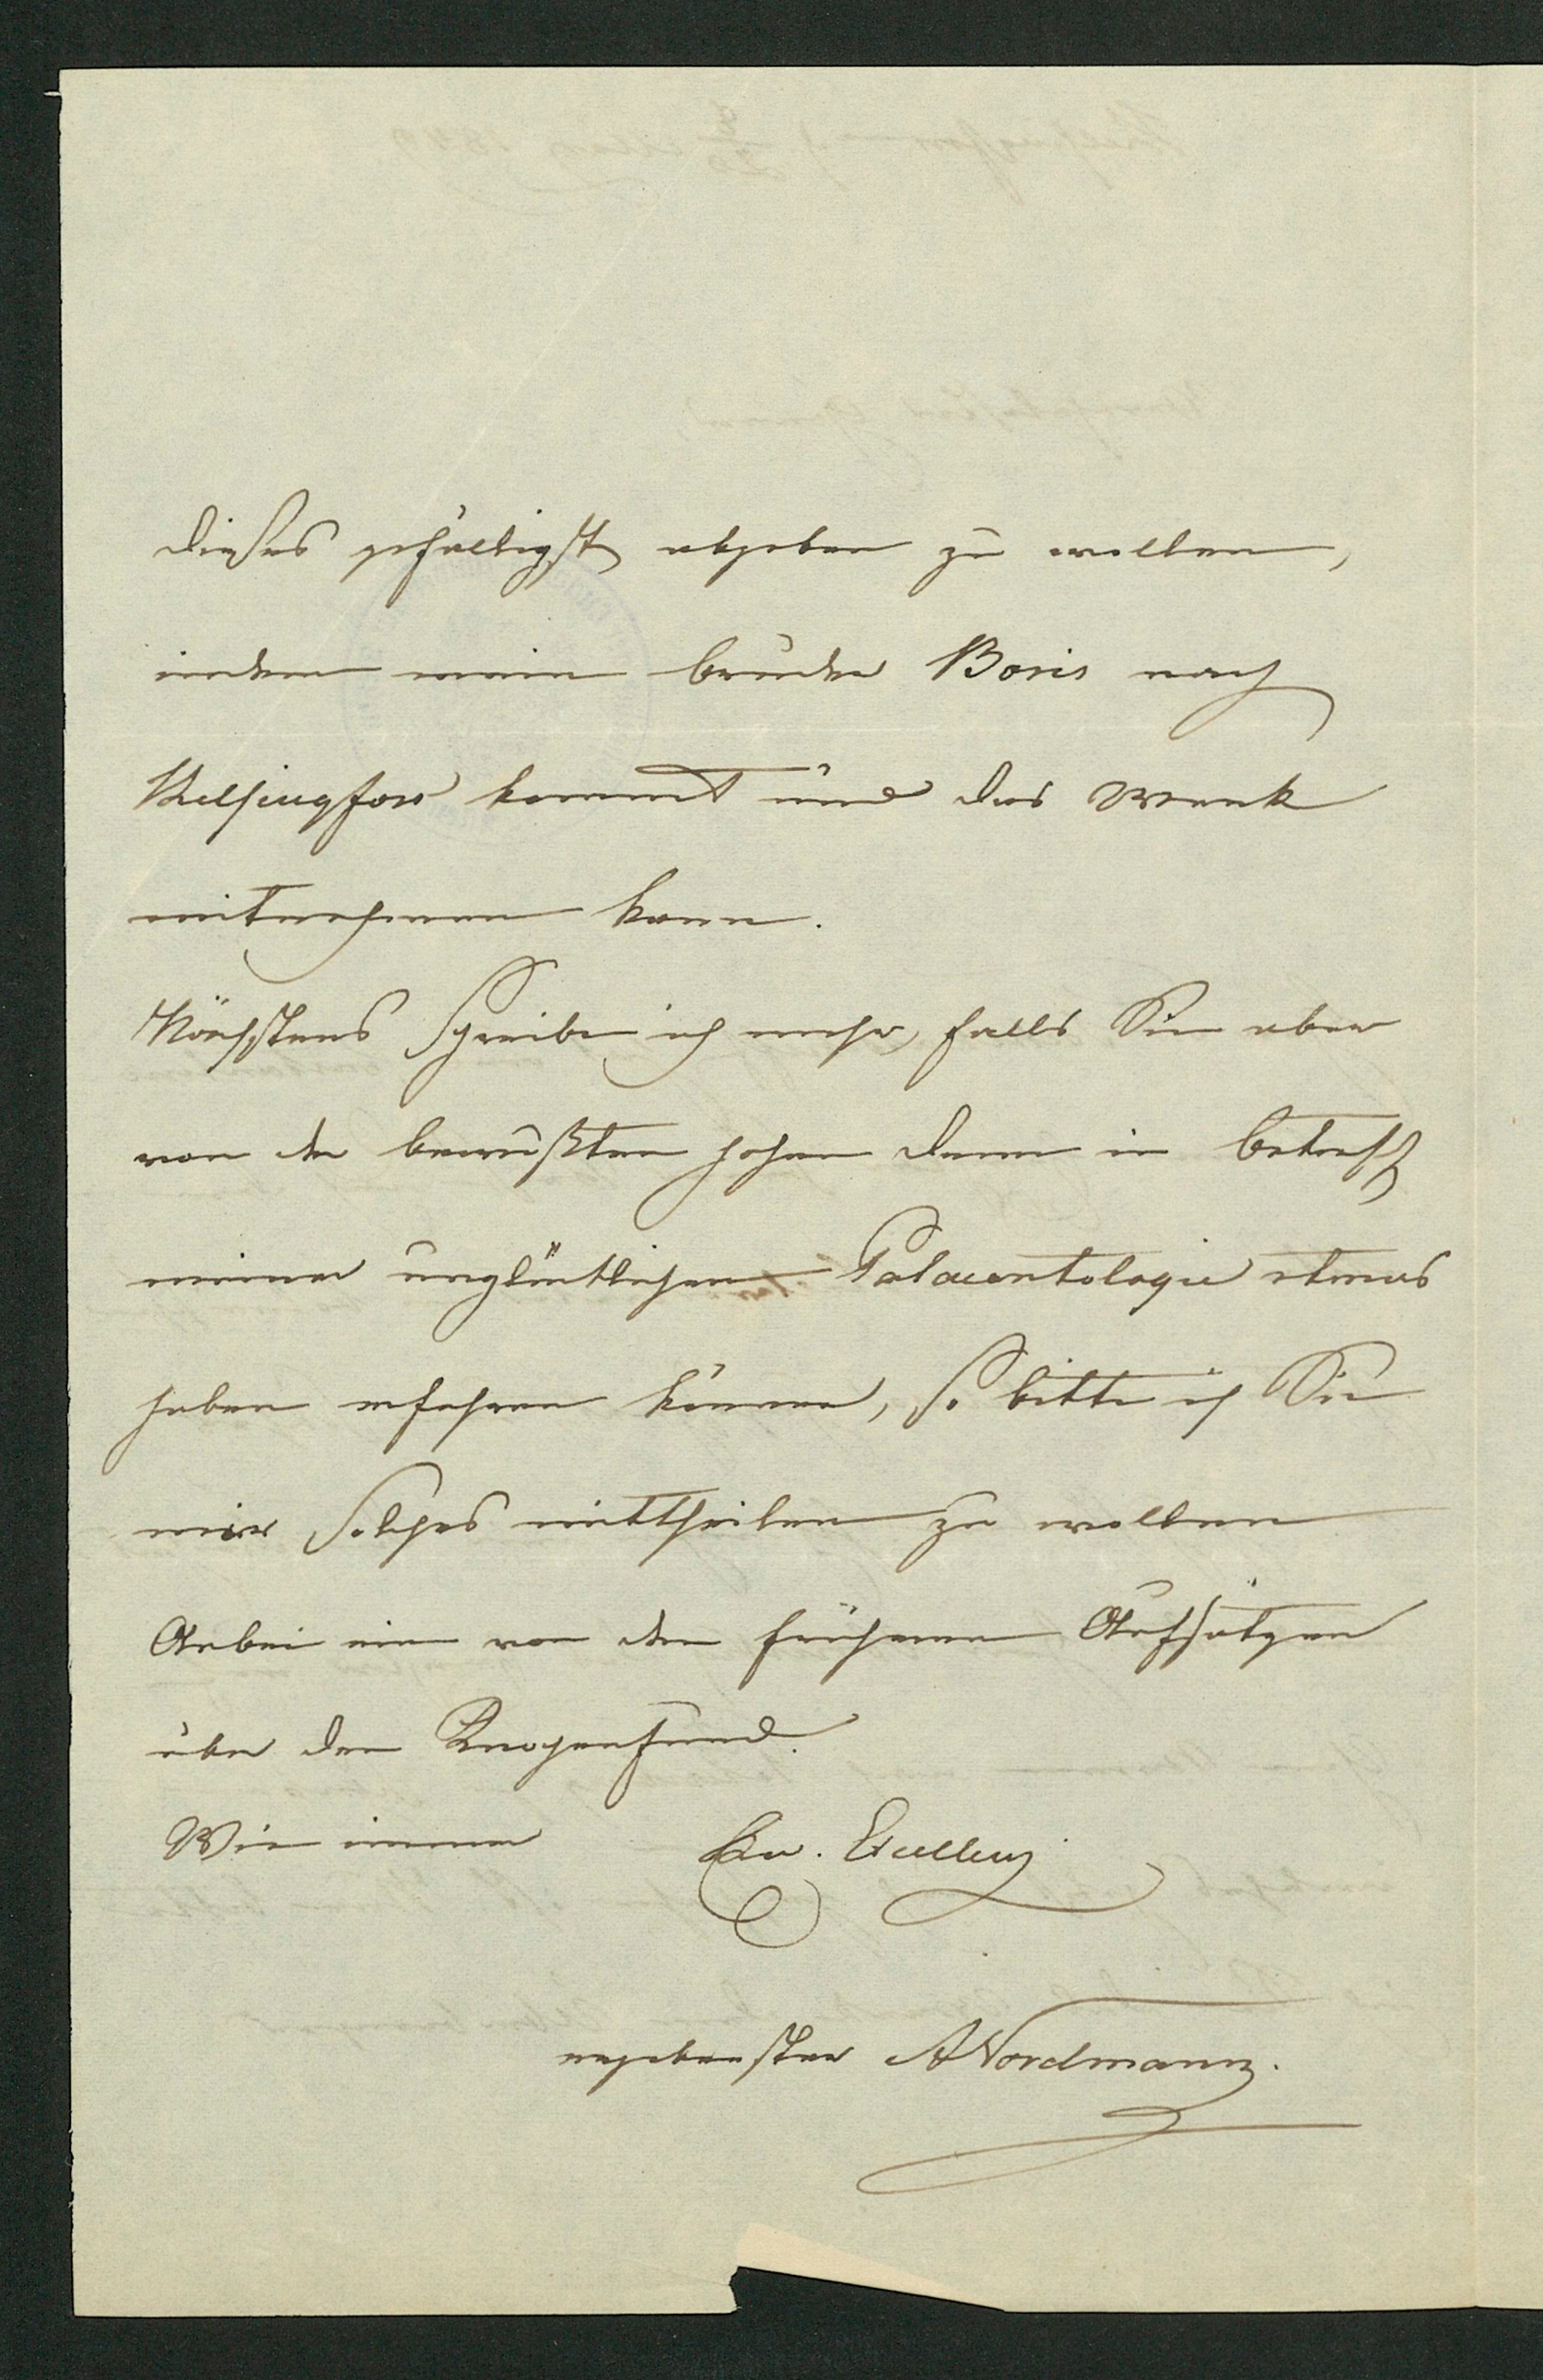 dieses gefälligst abgeben zu wollen,
indem mein Bruder Boris nach
Helsingfors kommt und das Werk
mitnehmen kann.
Nächstens schreibe ich mehr, falls Sie aber
von der bewußten hohen Dame in Betreff
meiner unglücklichen Palaeontologie etwas
haben erfahren können, so bitte ich Sie
mir Solches mittheilen zu wollen
Anbei eine von den früheren Aufsätzen
über den Knochenfund.
Wie immer Ew. Excellenz
ergebenster ANordmann.